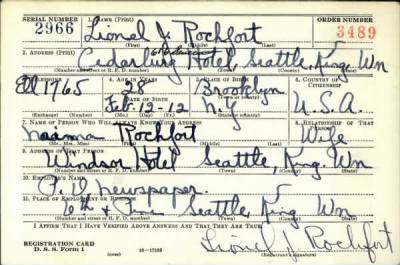 SERIAL NUMBER 1. NAME (Print) ORDER NUMBER
2966 Lionel J. Rochfort 3489
2. ADDRESS (Print)
Cedarburg Hotel Seattle, King, Wn
(Number and street or R. F. D. number) (Town) (County) (State)
3. TELEPHONE 4. AGE IN YEARS 5. PLACE OF BIRTH 6. COUNTRY OF CITIZENSHIP
El 1765 28 Brooklyn
DATE OF BIRTH
Feb-12-12 N.Y. U.S.A.
7. NAME OF PERSON WHO WILL ALWAYS KNOW YOUR ADDRESS 8. RELATIONSHIP OF THAT PERSON
Naama Rochfort Wife
(Mr., Mrs., Miss) (First) (Middle) (Last)
9. ADDRESS OF THAT PERSON
Windsor Hotel Seattle, King, Wn
(Number and street or R. F. D. number) (Town) (County) (State)
10. EMPLOYER'S NAME
P. I. Newspaper.
11. PLACE OF EMPLOYMENT OR BUSINESS
6th & Pine Seattle King Wn
(Number and street or R. F. D. number) (Town) (County) (State)
I AFFIRM THAT I HAVE VERIFIED ABOVE ANSWERS AND THAT THEY ARE TRUE.
REGISTRATION CARD
D. S. S. Form 1 16—17105 Lionel J. Rochfort
(Registrant's signature)